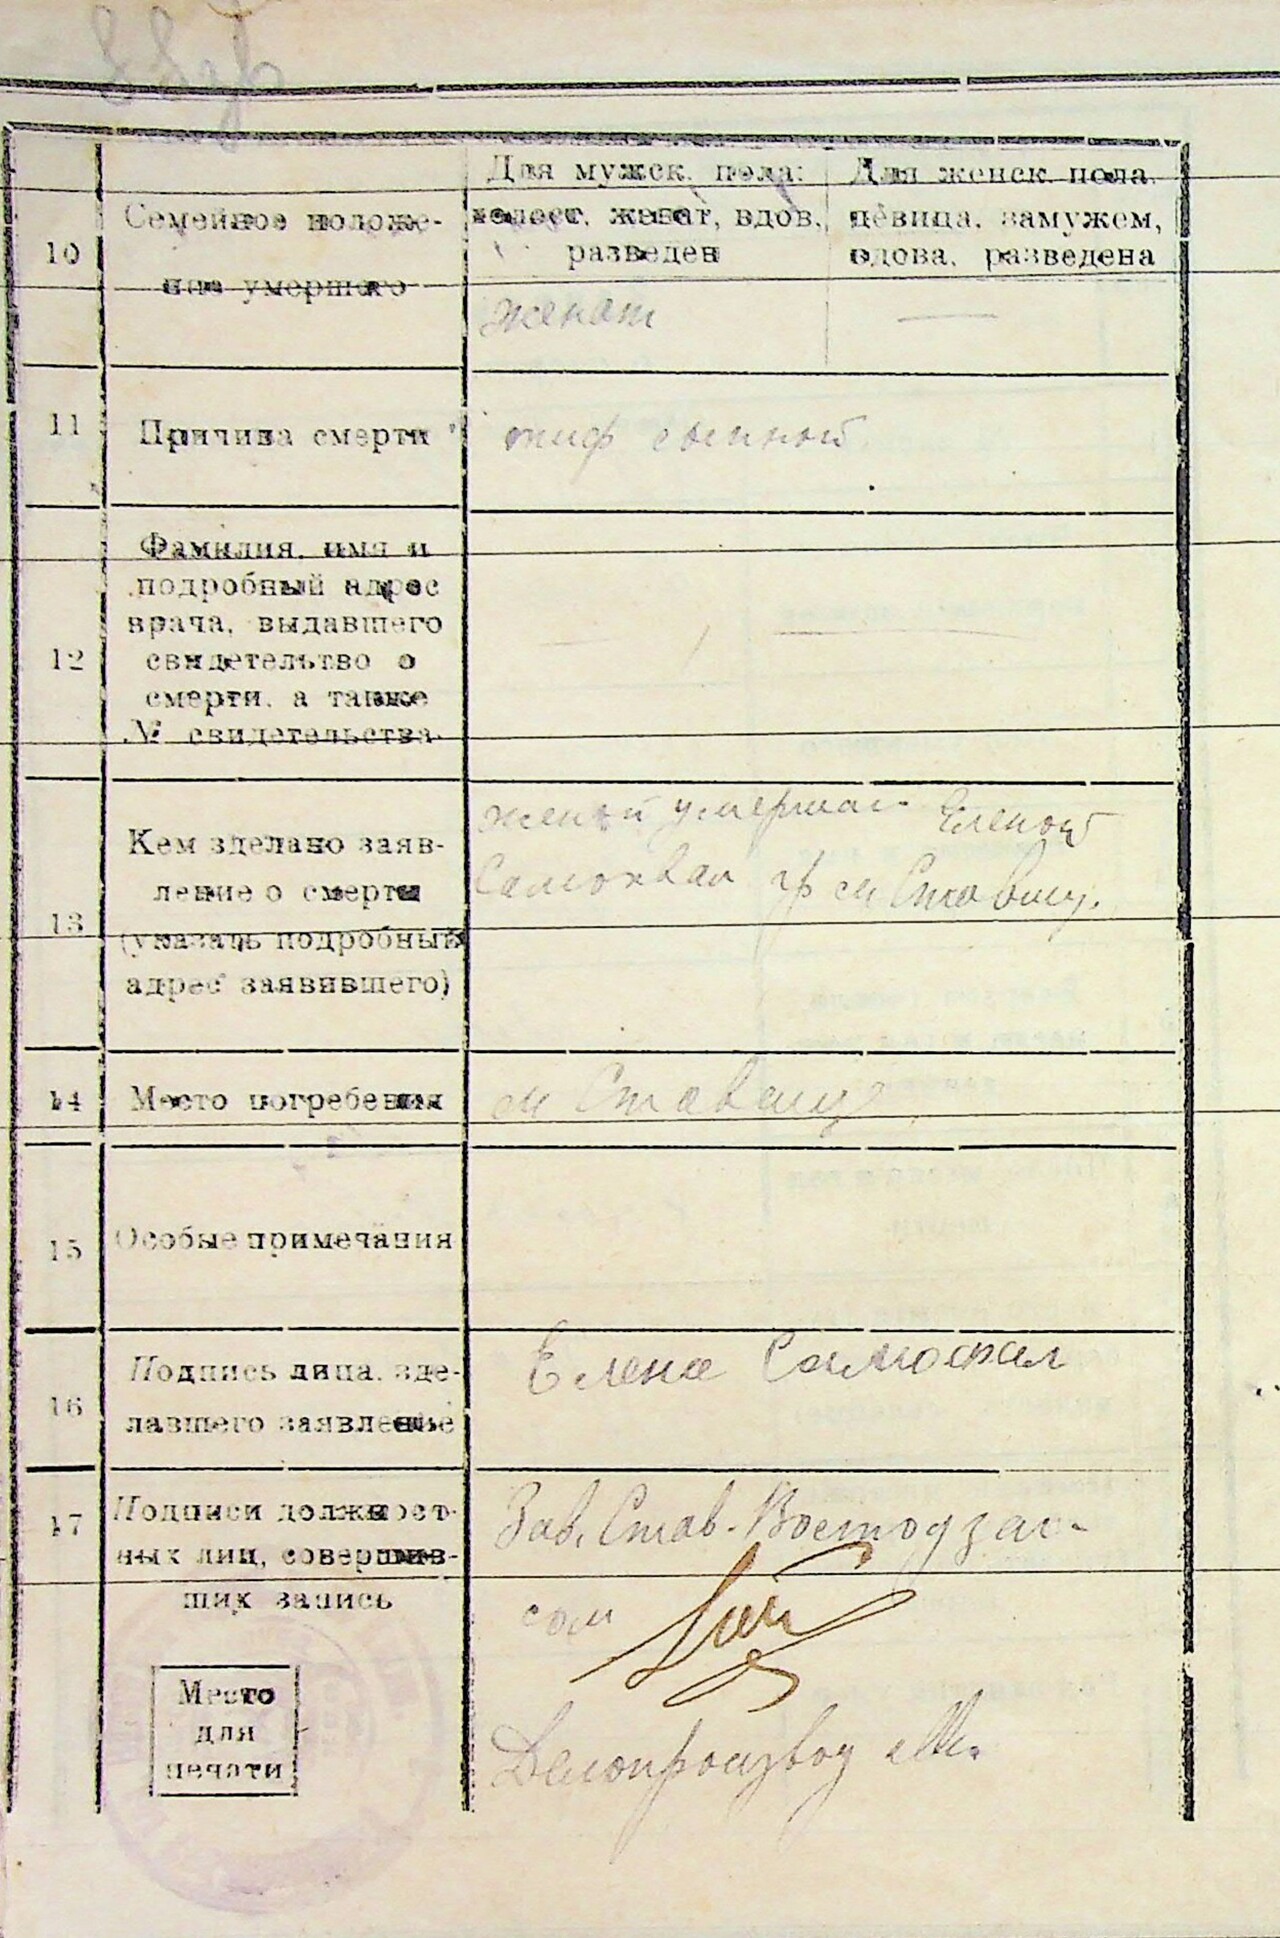 10
Семейное положе-
ние умершого
Для мужск. пола:
холост, женат, вдов,
разведен
Для женск. пола
девица, замужем,
вдова, разведена
женат
—
11
Причина смерти
тиф сыпной
12
Фамилия, имя и
подробный адрес
врача, выдавшего
свидетельство о
смерти, а также
№ свидетельства
13
Кем зделано заяв-
ление о смерти
(указать подробный
адрес заявившего)
женой умершаг. Еленой
Самохвал гр м Ставищ.
14
Место погребения
м Ставище
15
Особые примечания
16
Подпись лица, зде-
лавшего заявление
Елена Самохвал
17
Подписи должност-
ных лиц, совершив-
ших запись
Зав. Став.
Делопроизвод
Место
для
печати